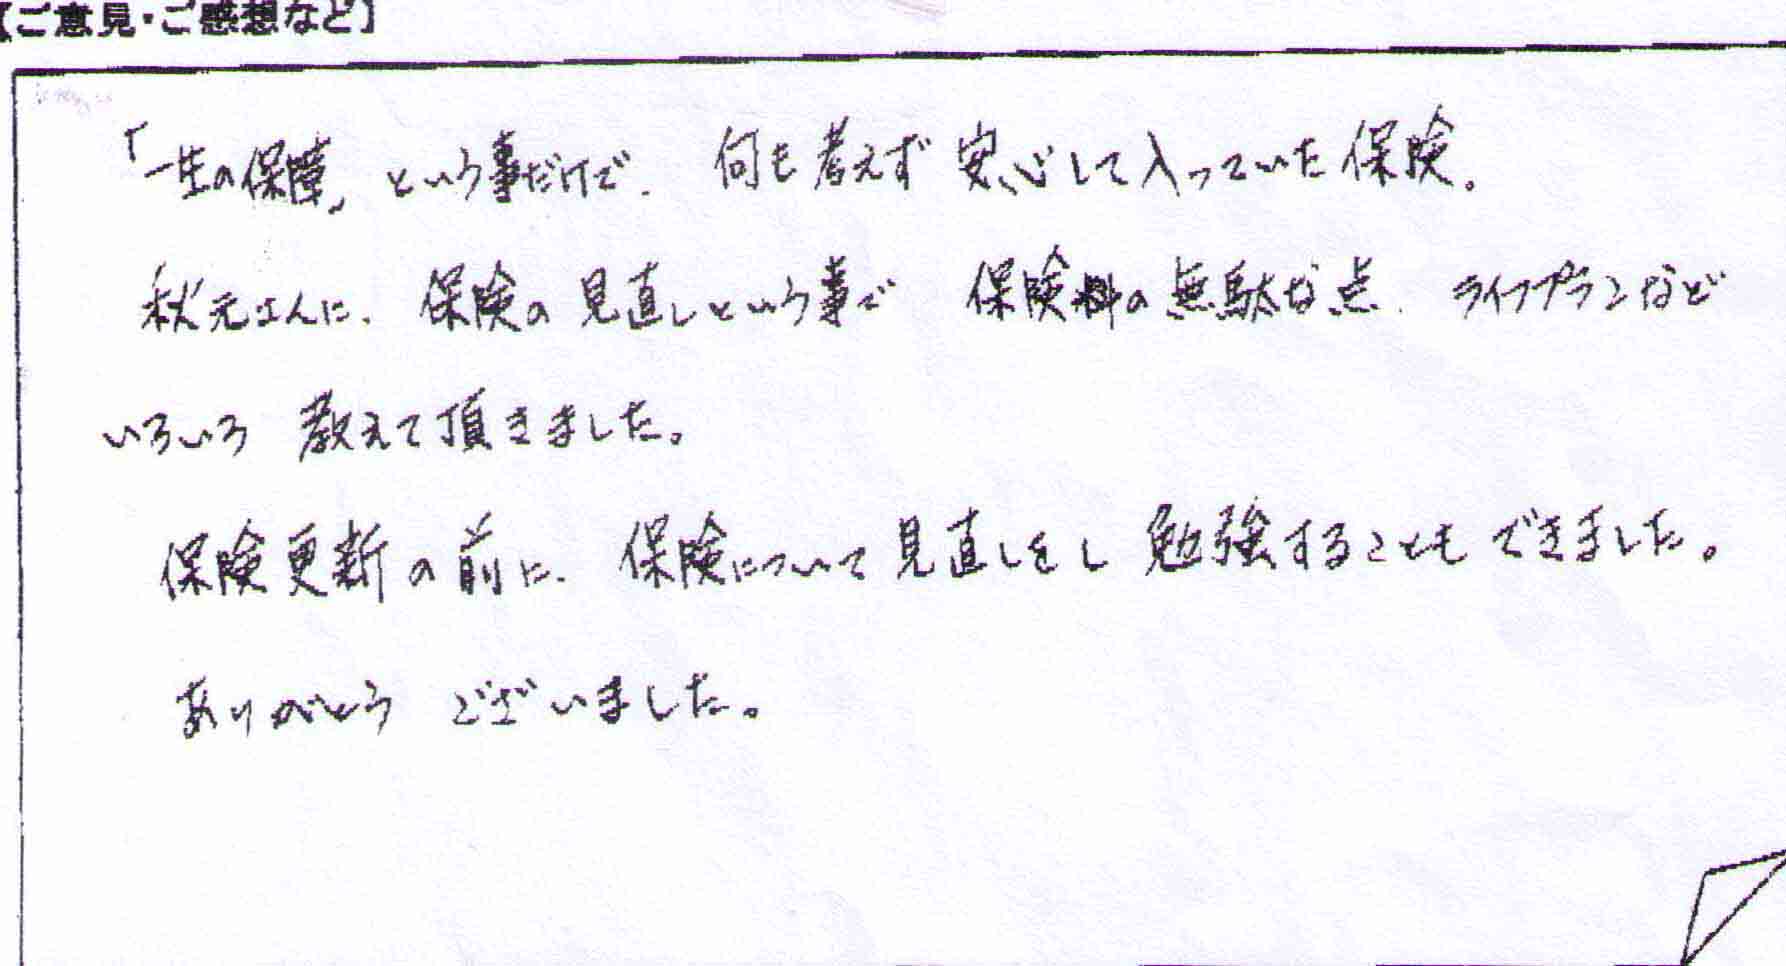 【ご意見・ご感想など】
「一生の保障」という事だけで、何も考えず安心して入っていた保険。
秋元さんに、保険の見直しという事で 保険料の無駄な点、ライフプランなど
いろいろ 教えて頂きました。
保険更新の前に、保険について見直しをし 勉強することもできました。
ありがとう ございました。